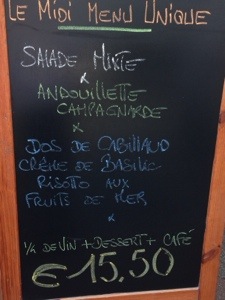 LE MIDI MENU UNIQUE
SALADE MIXTE
x
ANDOUILLETTE
CAMPAGNARDE
x
DOS DE CABILLAUD
CRÈME DE BASILIC
RISOTTO AUX
FRUITS DE MER
x
¼ DE VIN + DESSERT + CAFÉ
€ 15.50